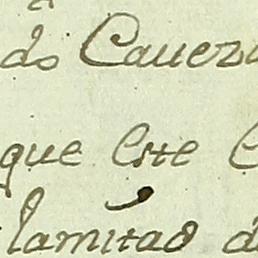 do Cauez
que este
lamitad d